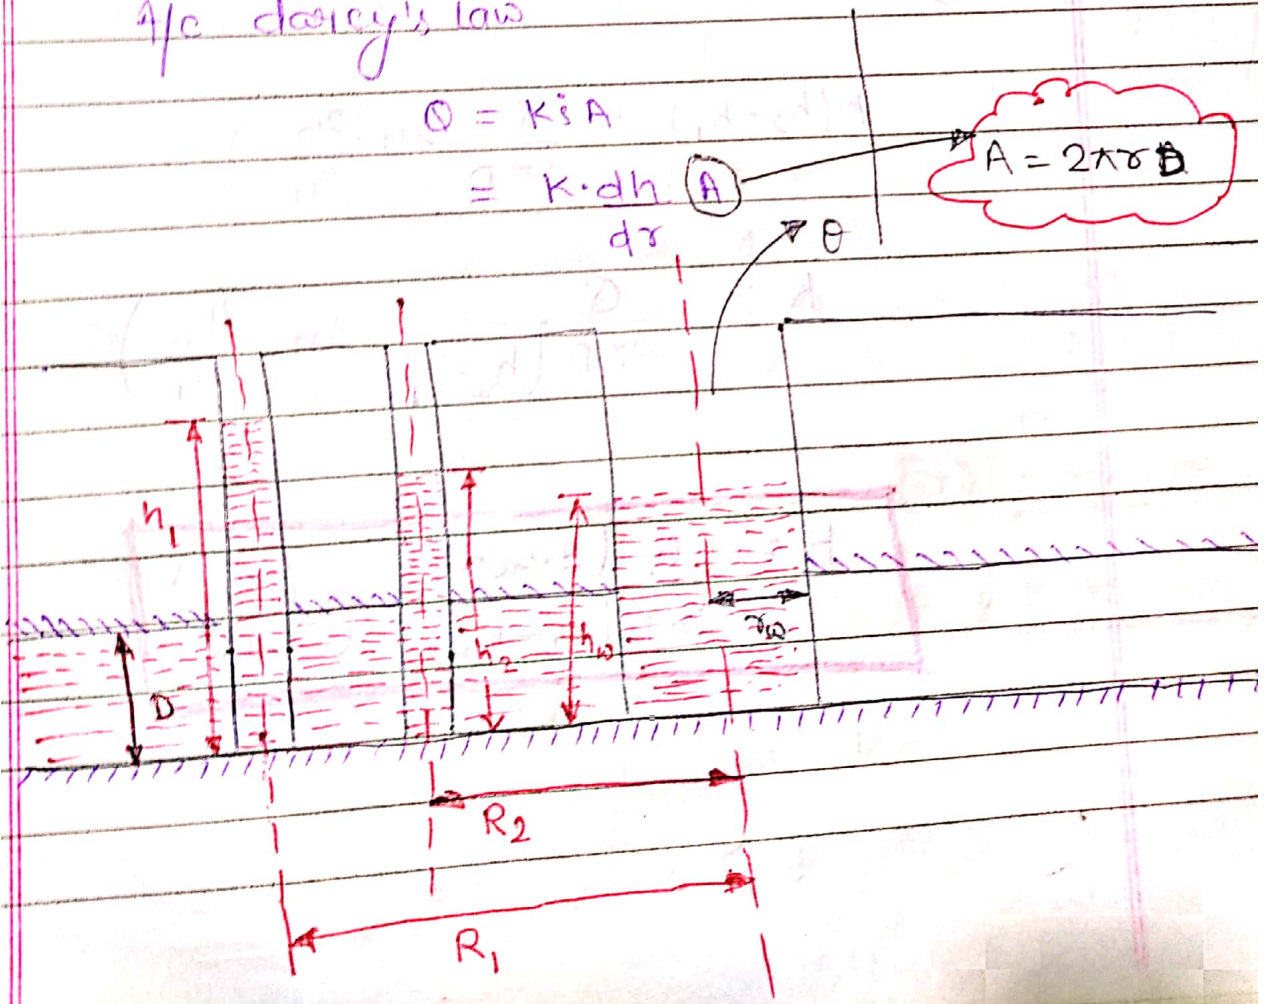 A/c darcy's law
Q = KiA
= K.dh/dr A
A = 2πrD
Q
h₁
D
h₂
hw
rw
R₂
R₁